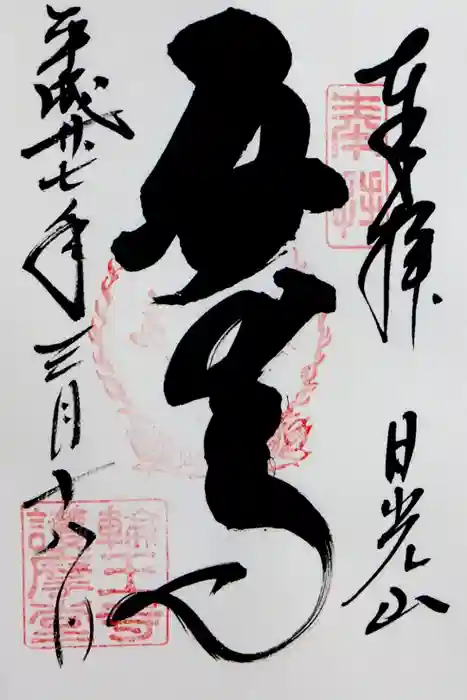 奉拝
奉拝
日光山
五大尊
平成廿七年三月十八日
輪王寺
護摩堂